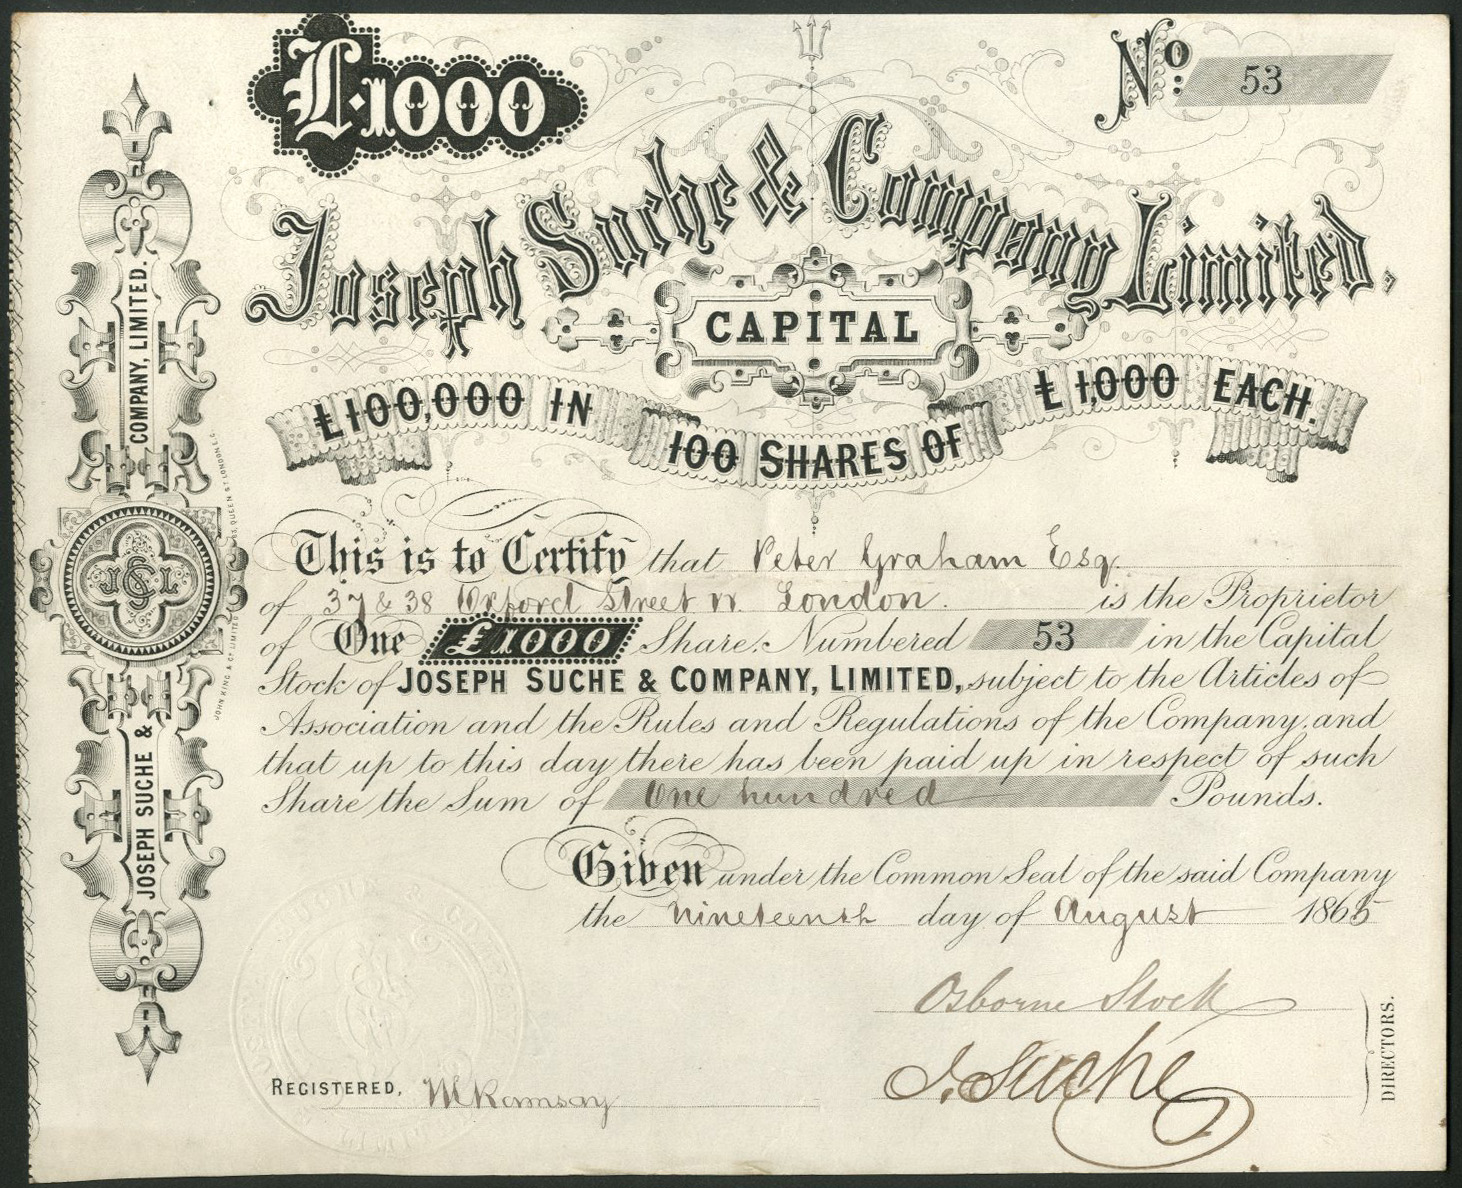 £1000
No: 53
Joseph Suche & Company Limited.
CAPITAL
£100,000 IN 100 SHARES OF £1,000 EACH.
This is to Certify that Peter Graham Esq.
of 37 & 38 Oxford Street W. London. is the Proprietor
of One £1000 Share. Numbered 53 in the Capital
Stock of JOSEPH SUCHE & COMPANY, LIMITED, subject to the Articles of
Association and the Rules and Regulations of the Company, and
that up to this day there has been paid up in respect of such
Share the Sum of One hundred Pounds.
Given under the Common Seal of the said Company
the nineteenth day of August 1865
Osborne Stock
J. Suche
DIRECTORS.
REGISTERED, McRamsay
JOSEPH SUCHE & COMPANY, LIMITED.
JS&CL
JOHN KING & Co LIMITED 63, QUEEN ST LONDON, E.C.